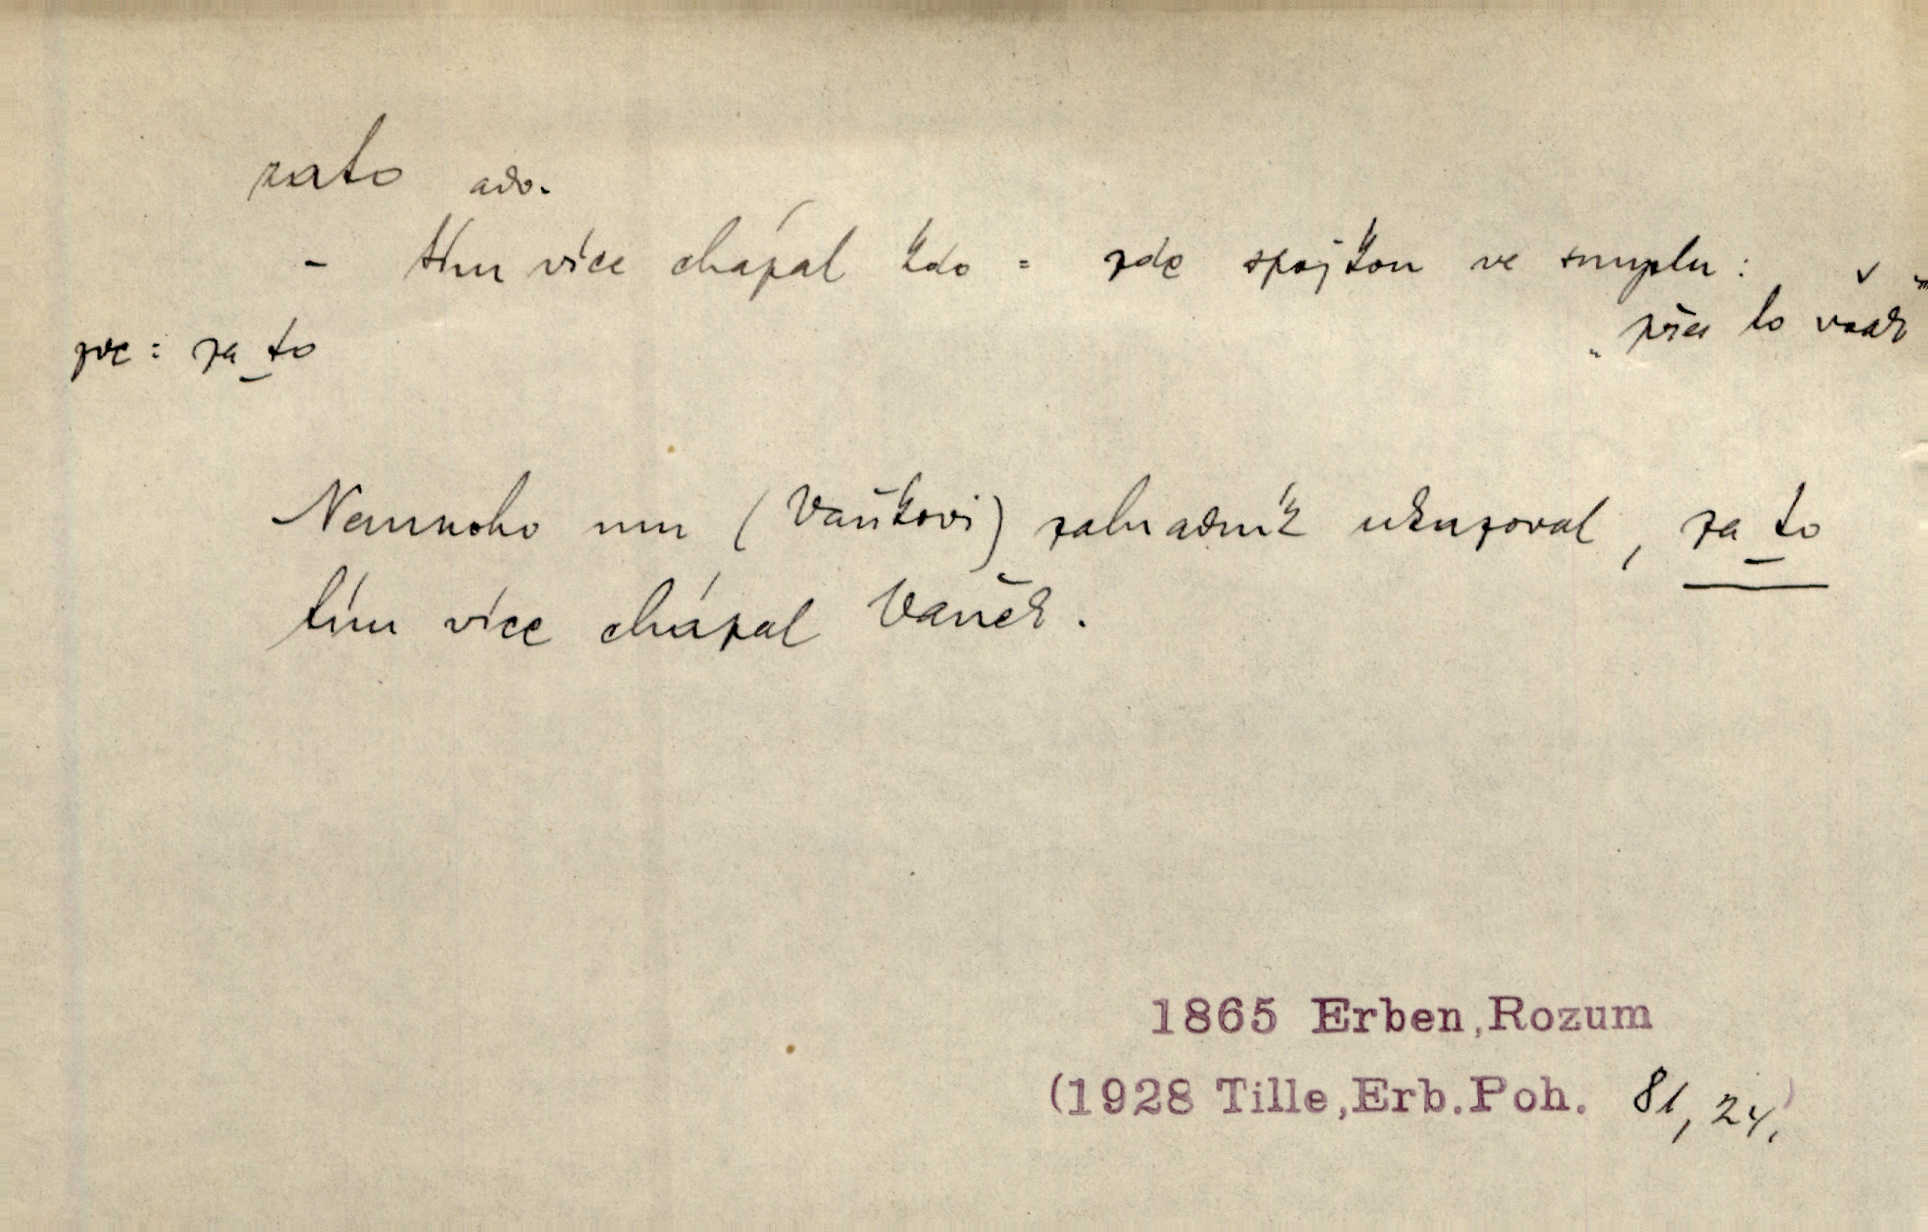 zato adv.
- tím více chápal kdo = zde spojkou ve smyslu:
„přes to však"
zvl: za to
Nemnoho mu (Vaňkovi) zahradník ukazoval, za to
tím více chápal Vaněk.
1865 Erben,Rozum
(1928 Tille,Erb.Poh. 81, 24.)